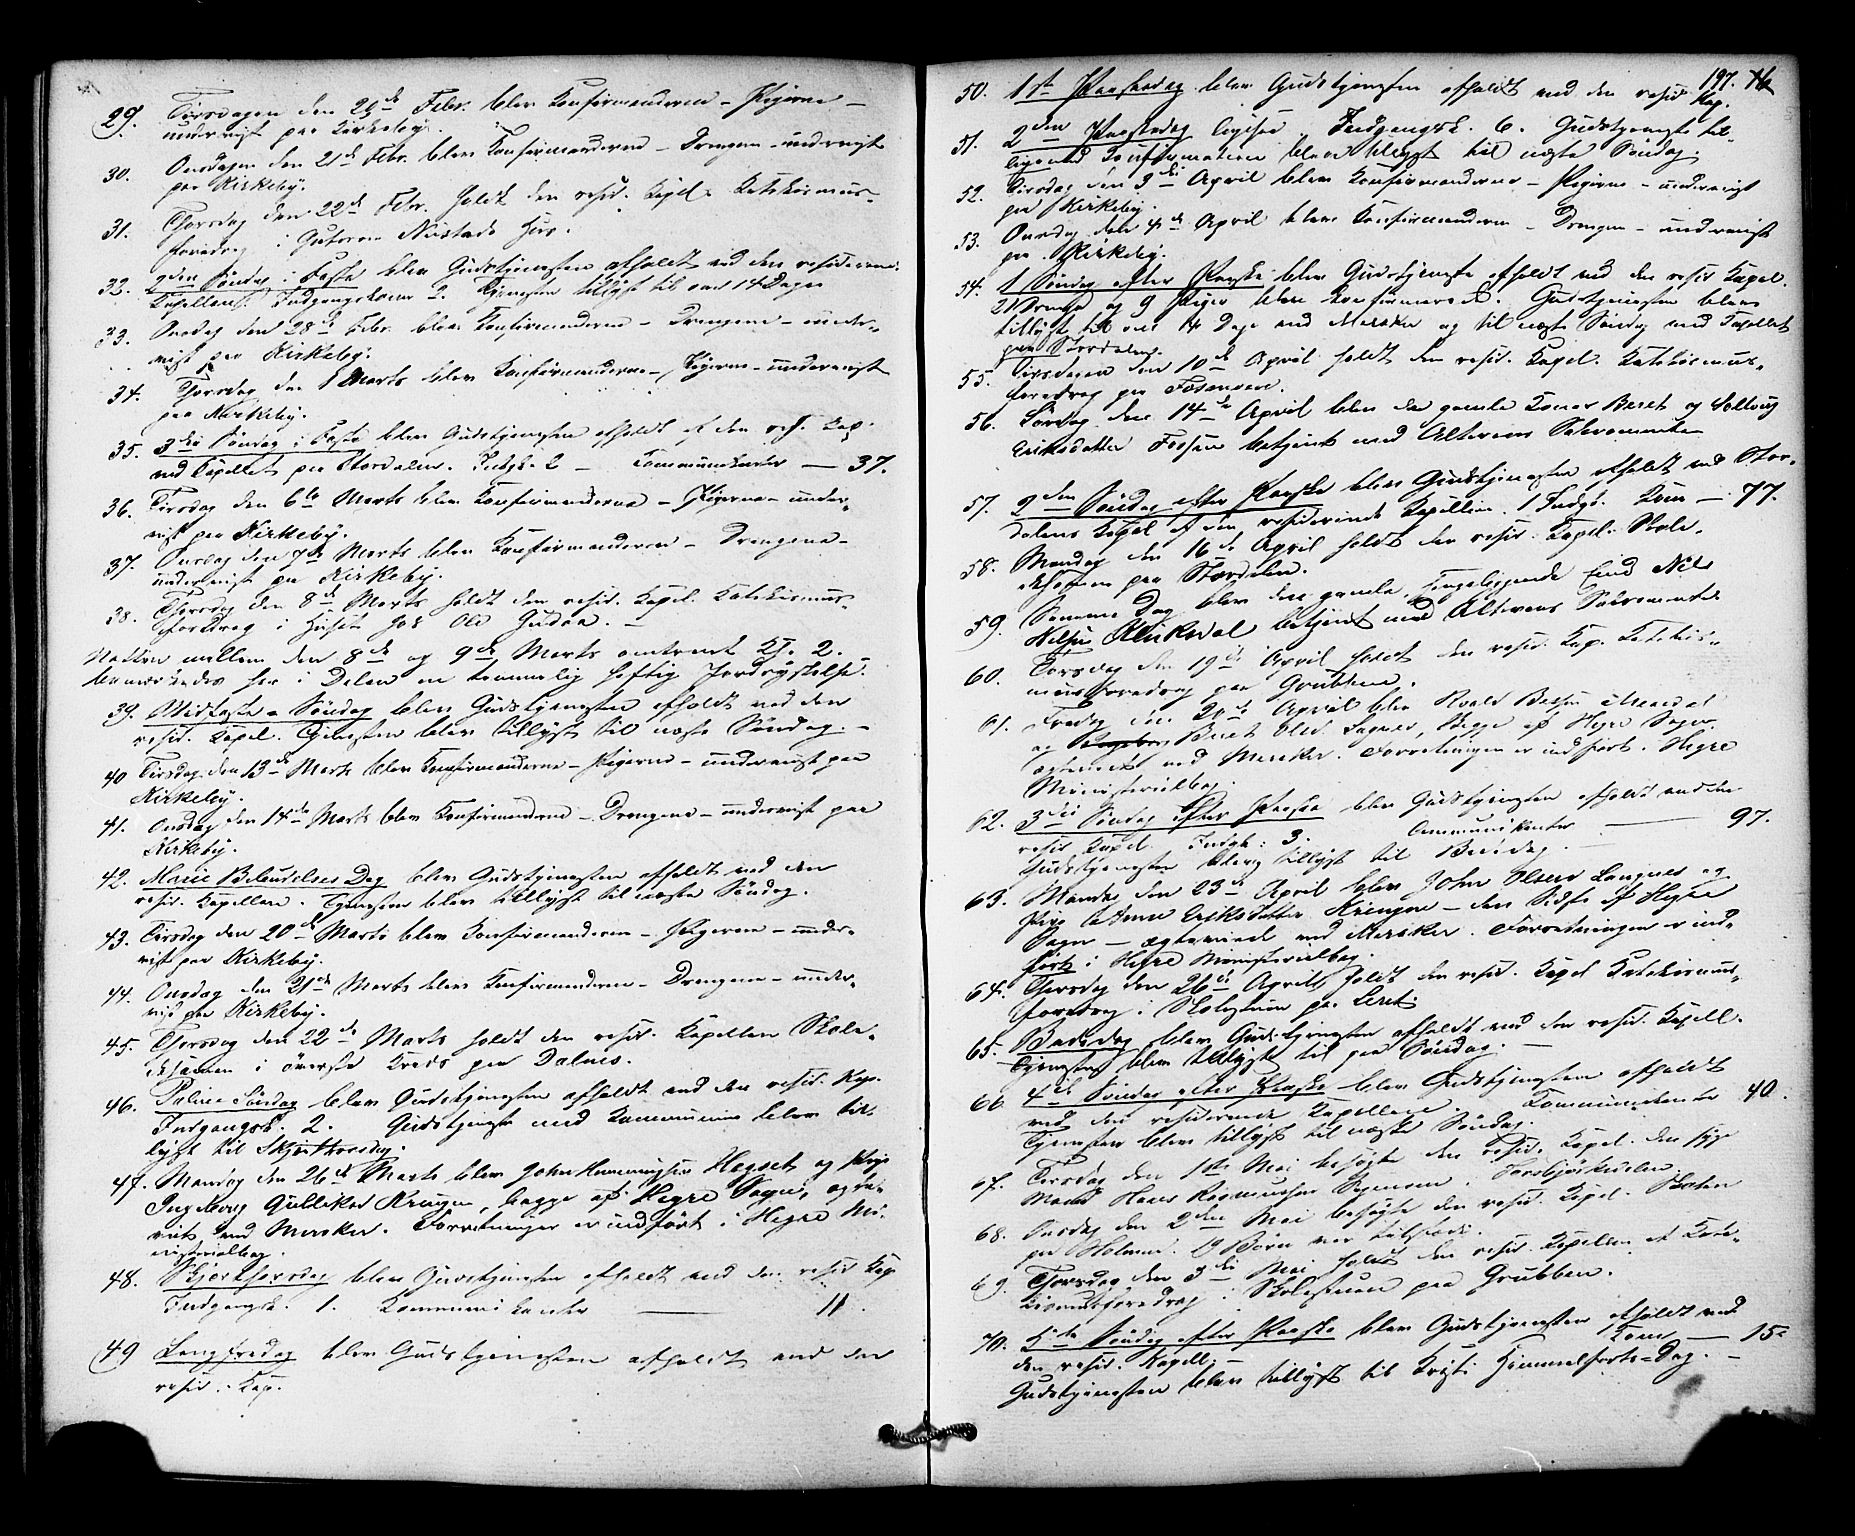 29. Tirsdagen den 20de Febr. blev Konfirmanderne – Pigerne –
undervist paa Kirkeby.
30. Onsdagen den 21de Febr. blev Konfirmanderne – Drengene – undervist
paa Kirkeby.
31. Thorsdag den 22de Febr. holdt den resid. Kapel. Katekismus-
foredrag i Gutorm Nustads Hus.
32. 2den Søndag i Faste blev Gudstjenesten afholdt ved den residerende
Kapellan. Indgangskoner 2. Tjenesten tillyst til om 14 Dage
33. Onsdag den 28de Febr. blev Konfirmanderne – Drengene – under-
vist paa Kirkeby.
34. Thorsdag den 1 Marts blev Konfirmanderne – Pigerne – undervist
paa Kirkeby.
35. 3die Søndag i Faste blev Gudstjenesten afholdt af den res. Kap.
ved Kapellet paa Stordalen. Indgk. 2 – Kommunikanter — 37.
36. Tirsdag den 6te Marts blev Konfirmanderne – Pigerne – under-
vist paa Kirkeby.
37. Onsdag den 7de Marts blev Konfirmanderne – Drengene –
undervist paa Kirkeby.
38. Thorsdag den 8de Marts holdt den resid. Kapel. Katekismus-
foredrag i Huset hos Ole Gudaa. –
Natten mellem den 8de og 9de Marts omtrent Kl. 2.
bemærkedes her i Dalen en temmelig heftig Jordrystelse.
39. Midfaste-Søndag blev Gudstjenesten afholdt ved den
resid. Kapel. Tjenesten blev tillyst til næste Søndag. –
40 Tirsdag den 13de Marts blev Konfirmanderne – Pigerne – undervist paa
Kirkeby.
41. Onsdag den 14de Marts blev Konfirmanderne – Drengene – undervist paa
Kirkeby.
42. Mariæ Bebudelses Dag blev Gudstjenesten afholdt ved den
resid. Kapellan. Tjenesten blev tillyst til næste Søndag.
43. Tirsdag den 20de Marts blev Konfirmanderne – Pigerne – under-
vist paa Kirkeby.
44. Onsdag den 21de Marts blev Konfirmanderne – Drengene – under-
vist paa Kirkeby.
45. Thorsdag den 22de Marts holdt den resid. Kapellan Skole-
eksamen i øverste Kreds paa Dalmo.
46. Palme Søndag blev Gudstjenesten afholdt ved den resid. Kap.
Indgangsk. 2. Gudstjeneste med Kommunion blev til-
lyst til Skjærthorsdag.
47. Mandag den 26de Marts blev John Henningsen Hegset og Pige
Ingeborg Gulliksd Kringen, begge af Hegre Sogn, ægte-
viet ved Meraker. Forretningen er indført i Hegre Mi-
nisterialbog.
48. Skjærthorsdag blev Gudstjenesten afholdt ved den resid Kap
Indgangsk. 1. Kommunikanter — 11.
49 Langfredag blev Gudstjenesten afholdt ved den
resid. Kap.
197.
50. 1ste Paaskedag blev Gudstjenesten afholdt ved den resid Kap.
51. 2den Paaskedag ligesaa. Indgangsk. 6. Gudstjeneste til-
ligemed Konfirmation blev tillyst til næste Søndag.
52. Tirsdag den 3die April blev Konfirmanderne – Pigerne – undervist
paa Kirkeby.
53. Onsdag den 4de April blev Konfirmanderne – Drengene – undervist
paa Kirkeby.
54. 1 Søndag efter Paaske blev Gudstjeneste afholdt ved den resid Kapel.
21 Drenge og 9 Piger bleve konfirmerede. Gudstjenesten blev
tillyst til om 14 Dage ved Meraker og til næste Søndag ved Kapellet
paa Stordalen.
55. Tirsdagen den 10de April holdt den resid. Kapel. Katekismus-
foredrag paa Fossen.
56. Lørdag den 14de April blev den gamle Kone Beret og Solveig
Eriksdatter Fossen betjent med Alterens Sakramente
57. 2den Søndag efter Paaske blev Gudstjenesten afholdt ved Stor-
dalens Kapel af den residerende Kapellan. 1 Indgk. Kom — 77.
58. Mandag den 16de April holdt den resid. Kapel. Skole-
eksamen paa Stordalen.
59. Samme Dag blev den gamle, sengeliggende Nils
Nilsen betjent med Alterens Sakramente
60. Torsdag den 19de April holdt den resid. Kap. Katekis-
musforedrag paa Grubben.
61. Fredag den 20de April blev Roald
og Beret Olsd. begge af Hegre Sogn
ægteviet ved Meraker. Forretningen er indført i Hegre
Ministerialbog.
62. 3die Søndag efter Paaske blev Gudstjenesten afholdt ved den
resid Kapel. Indgk: 3. Kommunikanter — 97.
Gudstjenesten blev tillyst til Bededag.
63. Mandag den 23de April blev John Olsen Langnes og
Pige Anne Eriksdatter Kringen – den Sidste af Hegre
Sogn – ægteviede ved Meraker. Forretningen er ind-
ført i Hegre Ministerialbog.
64. Thorsdag den 26de April holdt den resid. Kapel Katekismus-
foredrag i Skolestuen paa
65. Bededag blev Gudstjenesten afholdt ved den resid. Kapell.
Tjenesten blev tillyst til paa Søndag.
66 4de Søndag efter Paaske blev Gudstjenesten afholdt
ved den residerende Kapellan. Kommunikanter 40.
Tjenesten blev tillyst til næste Søndag.
67. Tirsdag den 1ste Mai besøgte den resid. Kapel. den syge
Mand Hans Rasmussen i Torsbjørkdalen.
68. Onsdag den 2den Mai besøgte den resid. Kapel. Skolen
paa Holmen. 19 Børn var tilstede.
69. Thorsdag den 3die Mai holdt den resid. Kapellan et Kate-
kismusforedrag i Skolestuen paa Grubben.
70. 5te Søndag efter Paaske blev Gudstjenesten afholdt ved
den resid. Kapell. – Kom — 15.
Gudstjenesten blev tillyst til Kristi Himmelfarts-Dag. –